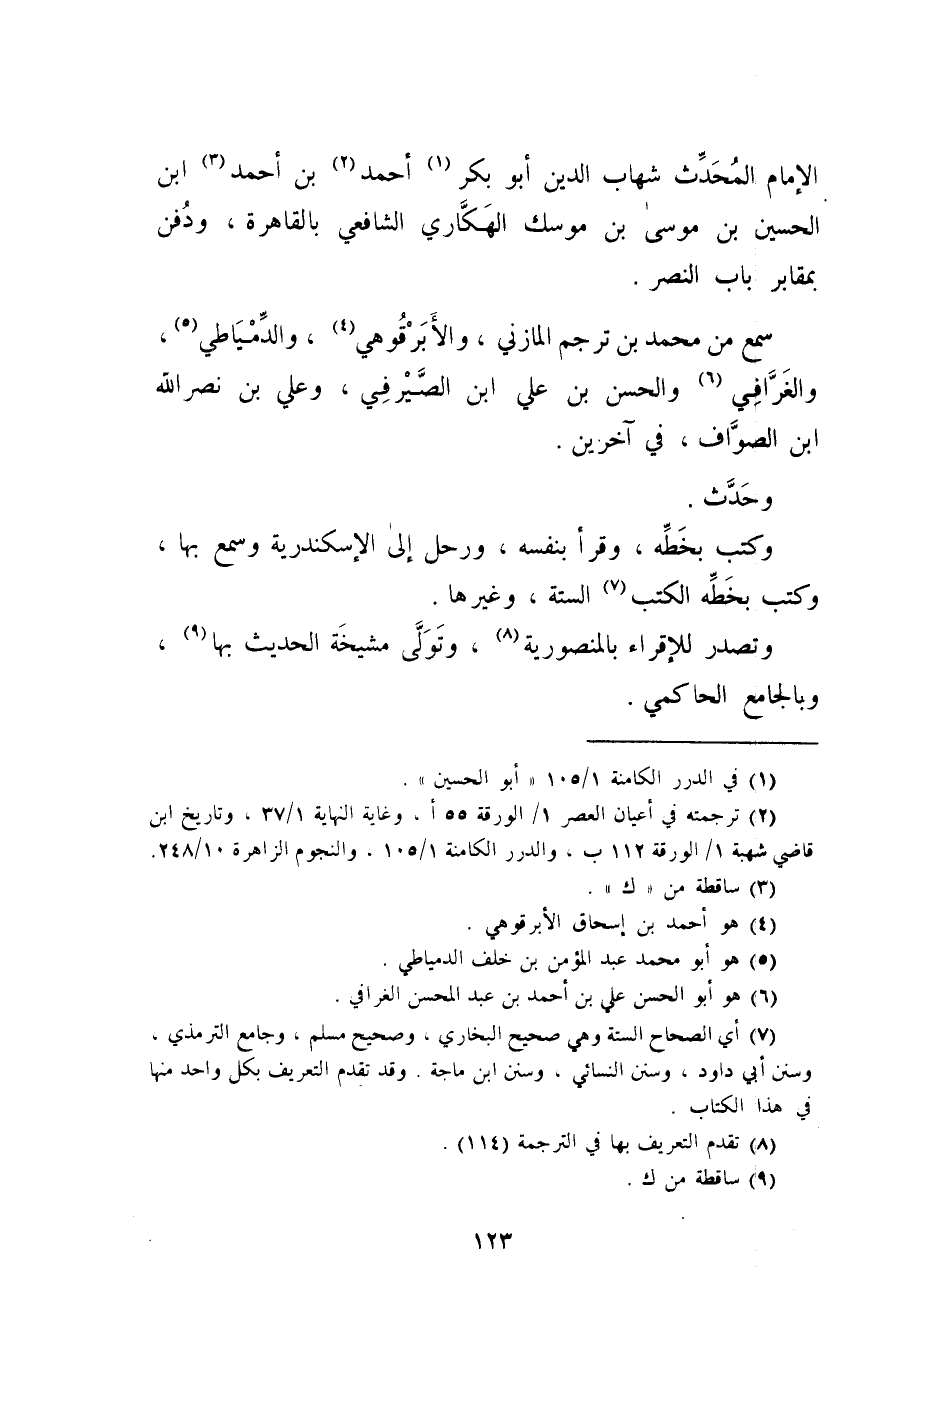 الإمام المُحَدِّث شهاب الدين أبو بكر (١) أحمد (٢) بن أحمد (٣) ابن
الحسين بن موسىٰ بن موسك الهَكَّاري الشافعي بالقاهرة ، ودُفن
بمقابر باب النصر .
سمع من محمد بن ترجم المازني ، والأَبَرْقُوهي (٤) ، والدِّمْيَاطي (٥) ،
والغَرَّافِي (٦) والحسن بن علي ابن الصَّيْرفِي ، وعلي بن نصر الله
ابن الصوَّاف ، في آخرين .
وحَدَّث .
وكتب بخَطِّه ، وقرأ بنفسه ، ورحل إلىٰ الإسكندرية وسمع بها ،
وكتب بخَطِّه الكتب (٧) الستة ، وغيرها .
وتصدر للإقراء بالمنصورية (٨) ، وتَوَلَّى مشيخَة الحديث بها (٩) ،
وبالجامع الحاكمي .
(١) في الدرر الكامنة ١٠٥/١ « أبو الحسين » .
(٢) ترجمته في أعيان العصر ١/ الورقة ٥٥ أ ، وغاية النهاية ٣٧/١ ، وتاريخ ابن
قاضي شهبة ١/ الورقة ١١٢ ب ، والدرر الكامنة ١٠٥/١ . والنجوم الزاهرة ٢٤٨/١٠.
(٣) ساقطة من « ك » .
(٤) هو أحمد بن إسحاق الأبرقوهي .
(٥) هو أبو محمد عبد المؤمن بن خلف الدمياطي .
(٦) هو أبو الحسن علي بن أحمد بن عبد المحسن الغرافي .
(٧) أي الصحاح الستة وهي صحيح البخاري ، وصحيح مسلم ، وجامع الترمذي ،
وسنن أبي داود ، وسنن النسائي ، وسنن ابن ماجة . وقد تقدم التعريف بكل واحد منها
في هذا الكتاب .
(٨) تقدم التعريف بها في الترجمة (١١٤) .
(٩) ساقطة من ك .
١٢٣